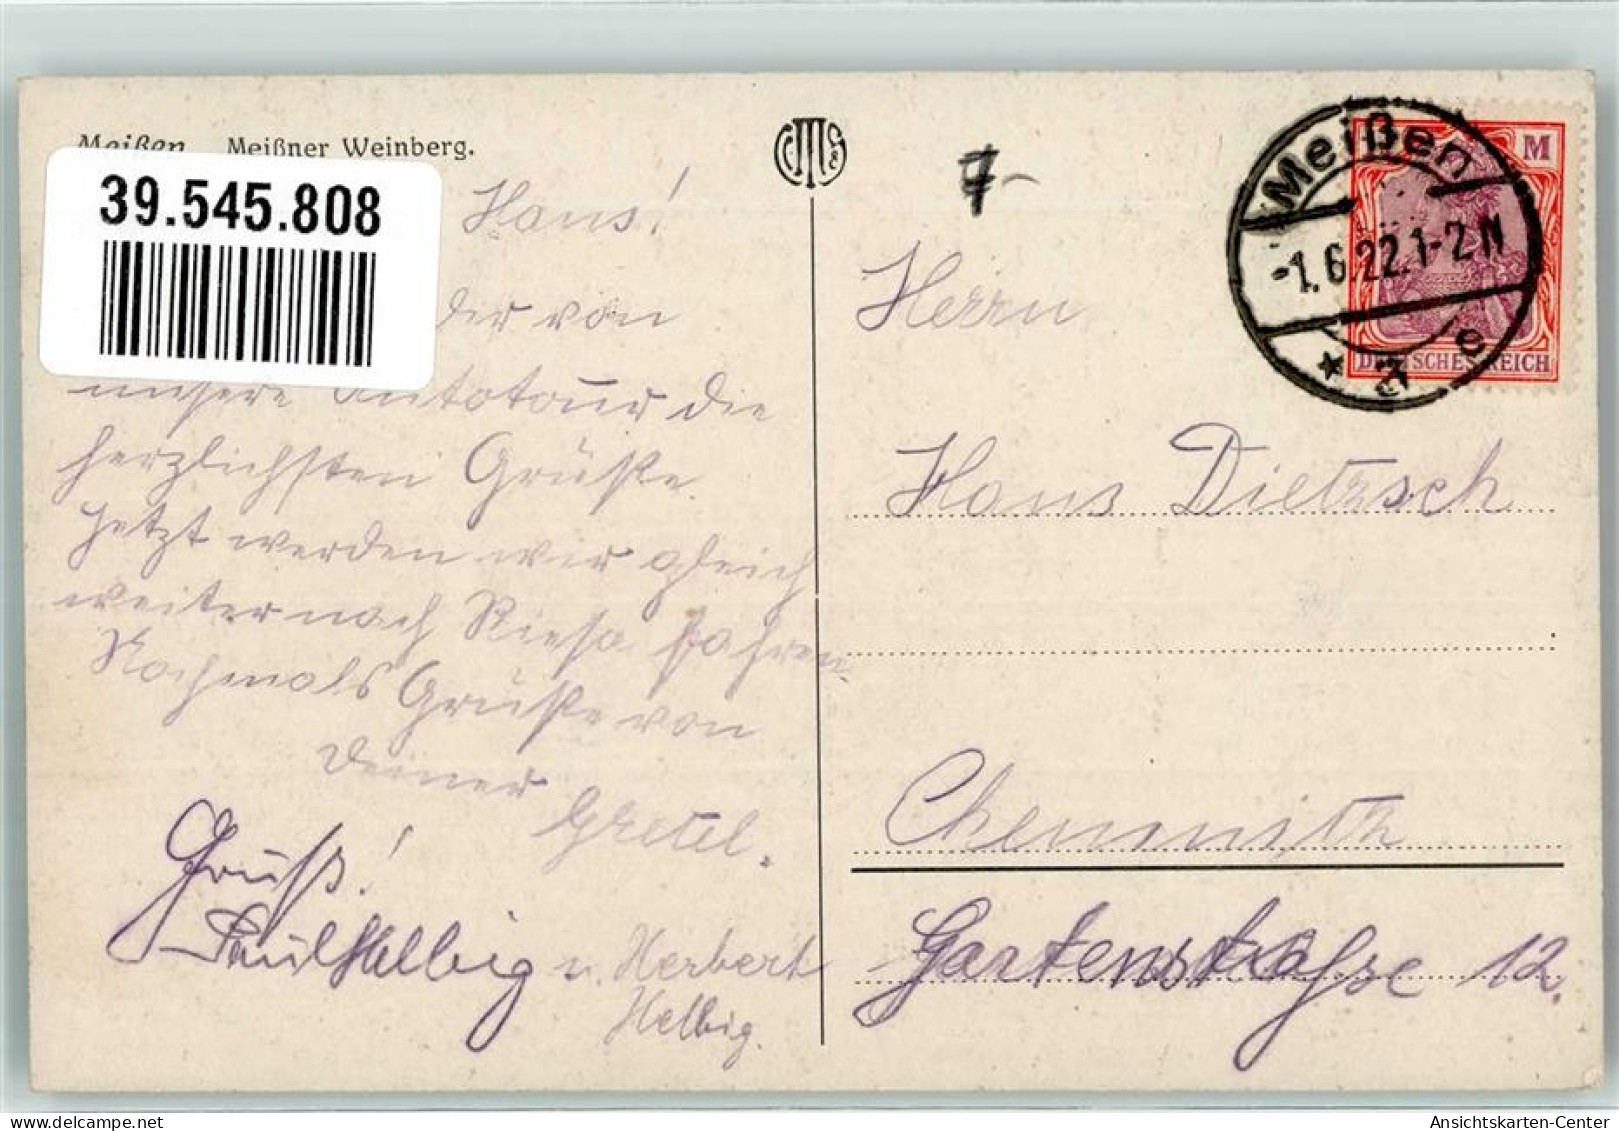 Meißen Meißner Weinberg.
39.545.808
Hans!
dir von
unsere Autotour die
herzlichsten Grüße.
Jetzt werden wir gleich
weiter nach Riesa fahren
Nochmals Grüße von
Deiner
Gretel.
Gruß!
Paul Helbig u. Herbert
Helbig.
7-
Meißen
-1.6.22.1-2 N
* a e
M
DEUTSCHES REICH
Herrn
Hans Dietzsch
Chemnitz
Gartenstraße 12.
Ansichtskarten-Center